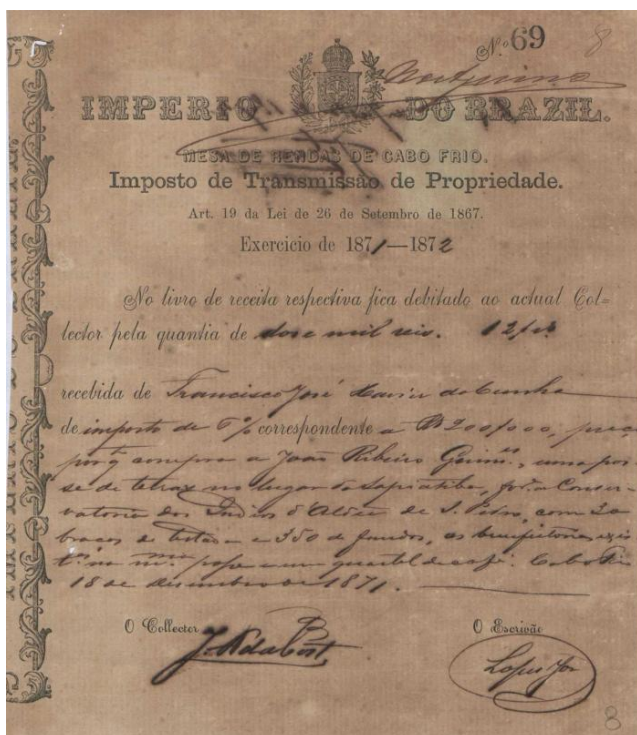 Nº 69
8
IMPERIO DO BRAZIL.
MESA DE RENDAS DE CABO FRIO.
Imposto de Transmissão de Propriedade.
Art. 19 da Lei de 26 de Setembro de 1867.
Exercicio de 1871—1872
No livro de receita respectiva fica debitado ao actual Col=
lector pela quantia de dose mil reis. 12
recebida de Francisco José da Cunha
de imposto de 6% correspondente a 200/000, preço
porq̃ comprou a João Ribeiro Guimes, uma pos
se de terras no lugar do Sapiatiba, for.a Conser-
vatoria dos Indios d'Aldea de S. Pedro, com 20
braças de testada e 350 de fundos, as benfeitorias exis
na posse e um quartel de café. Cabo Frio
18 de desembro de 1871.
O Collector
O Escrivão
Lopes Jor
8